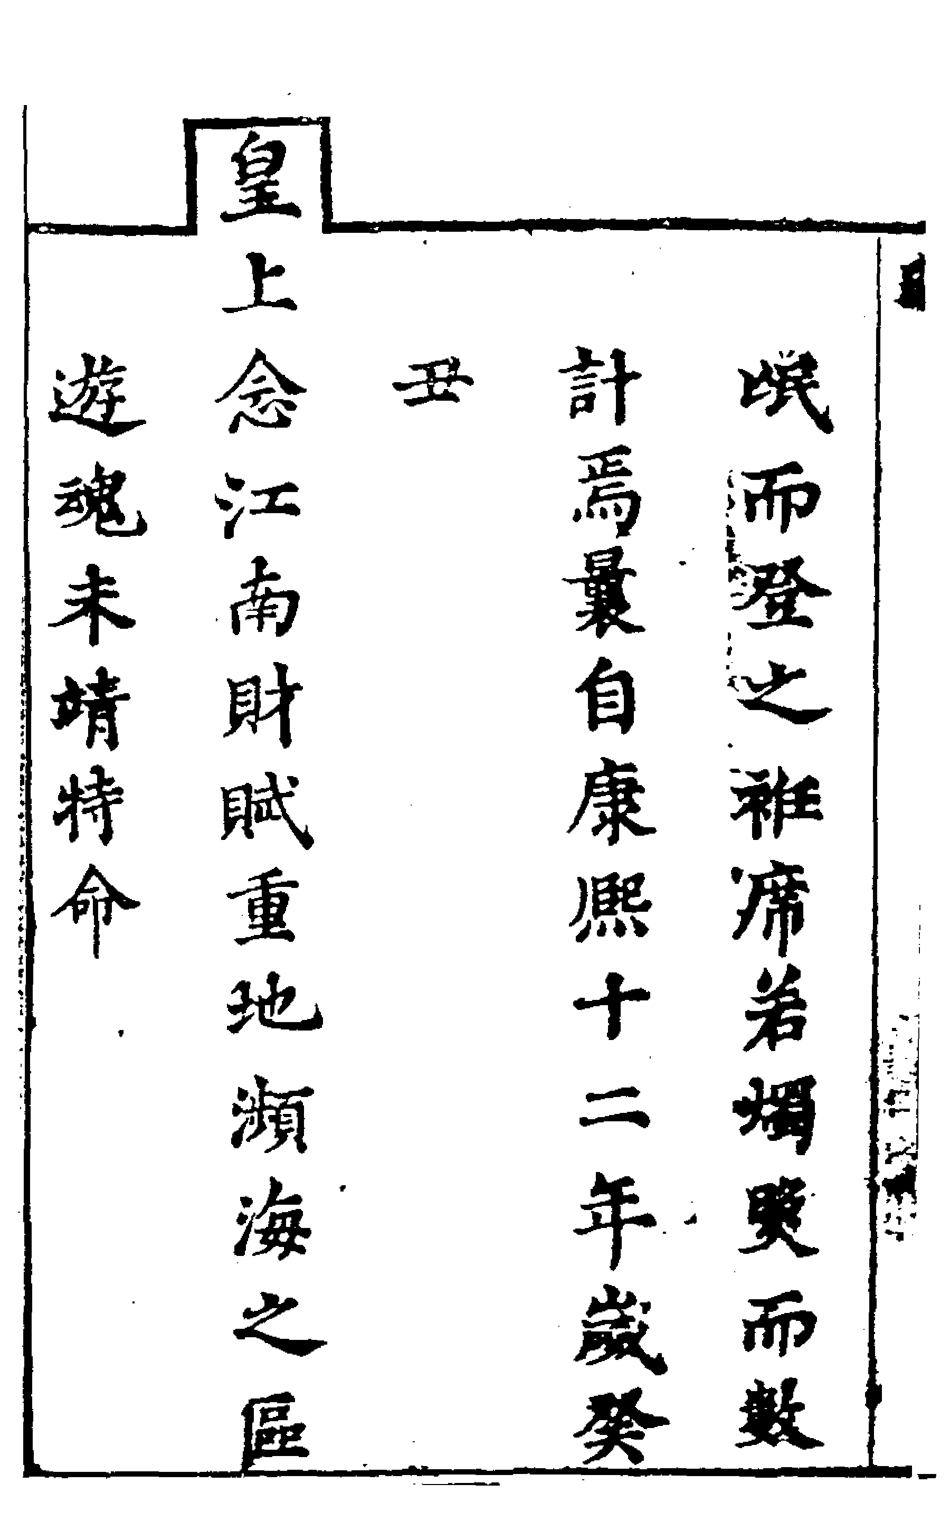 氓而登之袵席若燭照而數
計焉曩自康熙十二年歲癸
丑
皇上念江南財賦重地瀕海之區
遊魂未靖特命